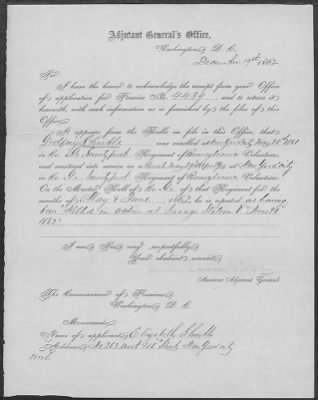 Adjutant General's Office,
Washington, D. C.
December 9th, 1862
Sir:
I have the honor to acknowledge the receipt from your Office
of application for Pension No. 4489, and to return it
herewith, with such information as is furnished by the files of this
Office.
It appears from the Rolls on file in this Office, that
Godfrey was enrolled at New York City May 28th 1861
in Co. Regiment of Pennsylvania Volunteers,
and mustered into service as a at New York City
in Co. Regiment of Pennsylvania Volunteers.
On the Muster Roll of Co. of that Regiment, for the
months of May & June, 1862, he is reported as having
been "Killed in action at Savage Station Va June 29
1862"
I am, Sir, very respectfully,
Your obedient servant,
Assistant Adjutant General
The Commissioner of Pensions,
Washington, D. C.
Memoranda:
Name of applicant, Elizabeth
Address, No 263 West Street, New York City